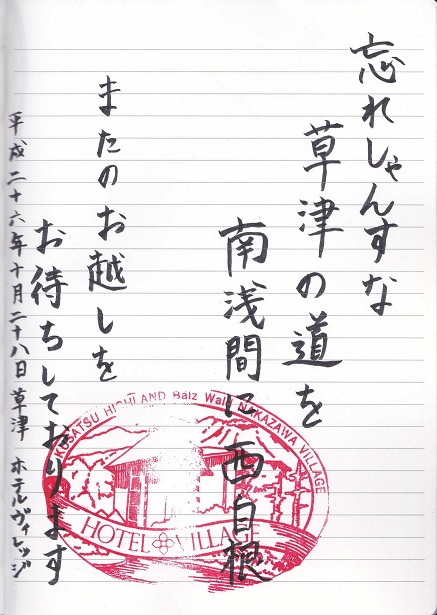 忘れしゃんすな
草津の道を
南浅間に西白根
またのお越しを
お待ちしております
平成二十六年十月二十八日 草津 ホテルヴィレッジ
KUSATSU HIGHLAND Bälz Wald NAKAZAWA VILLAGE
HOTEL VILLAGE